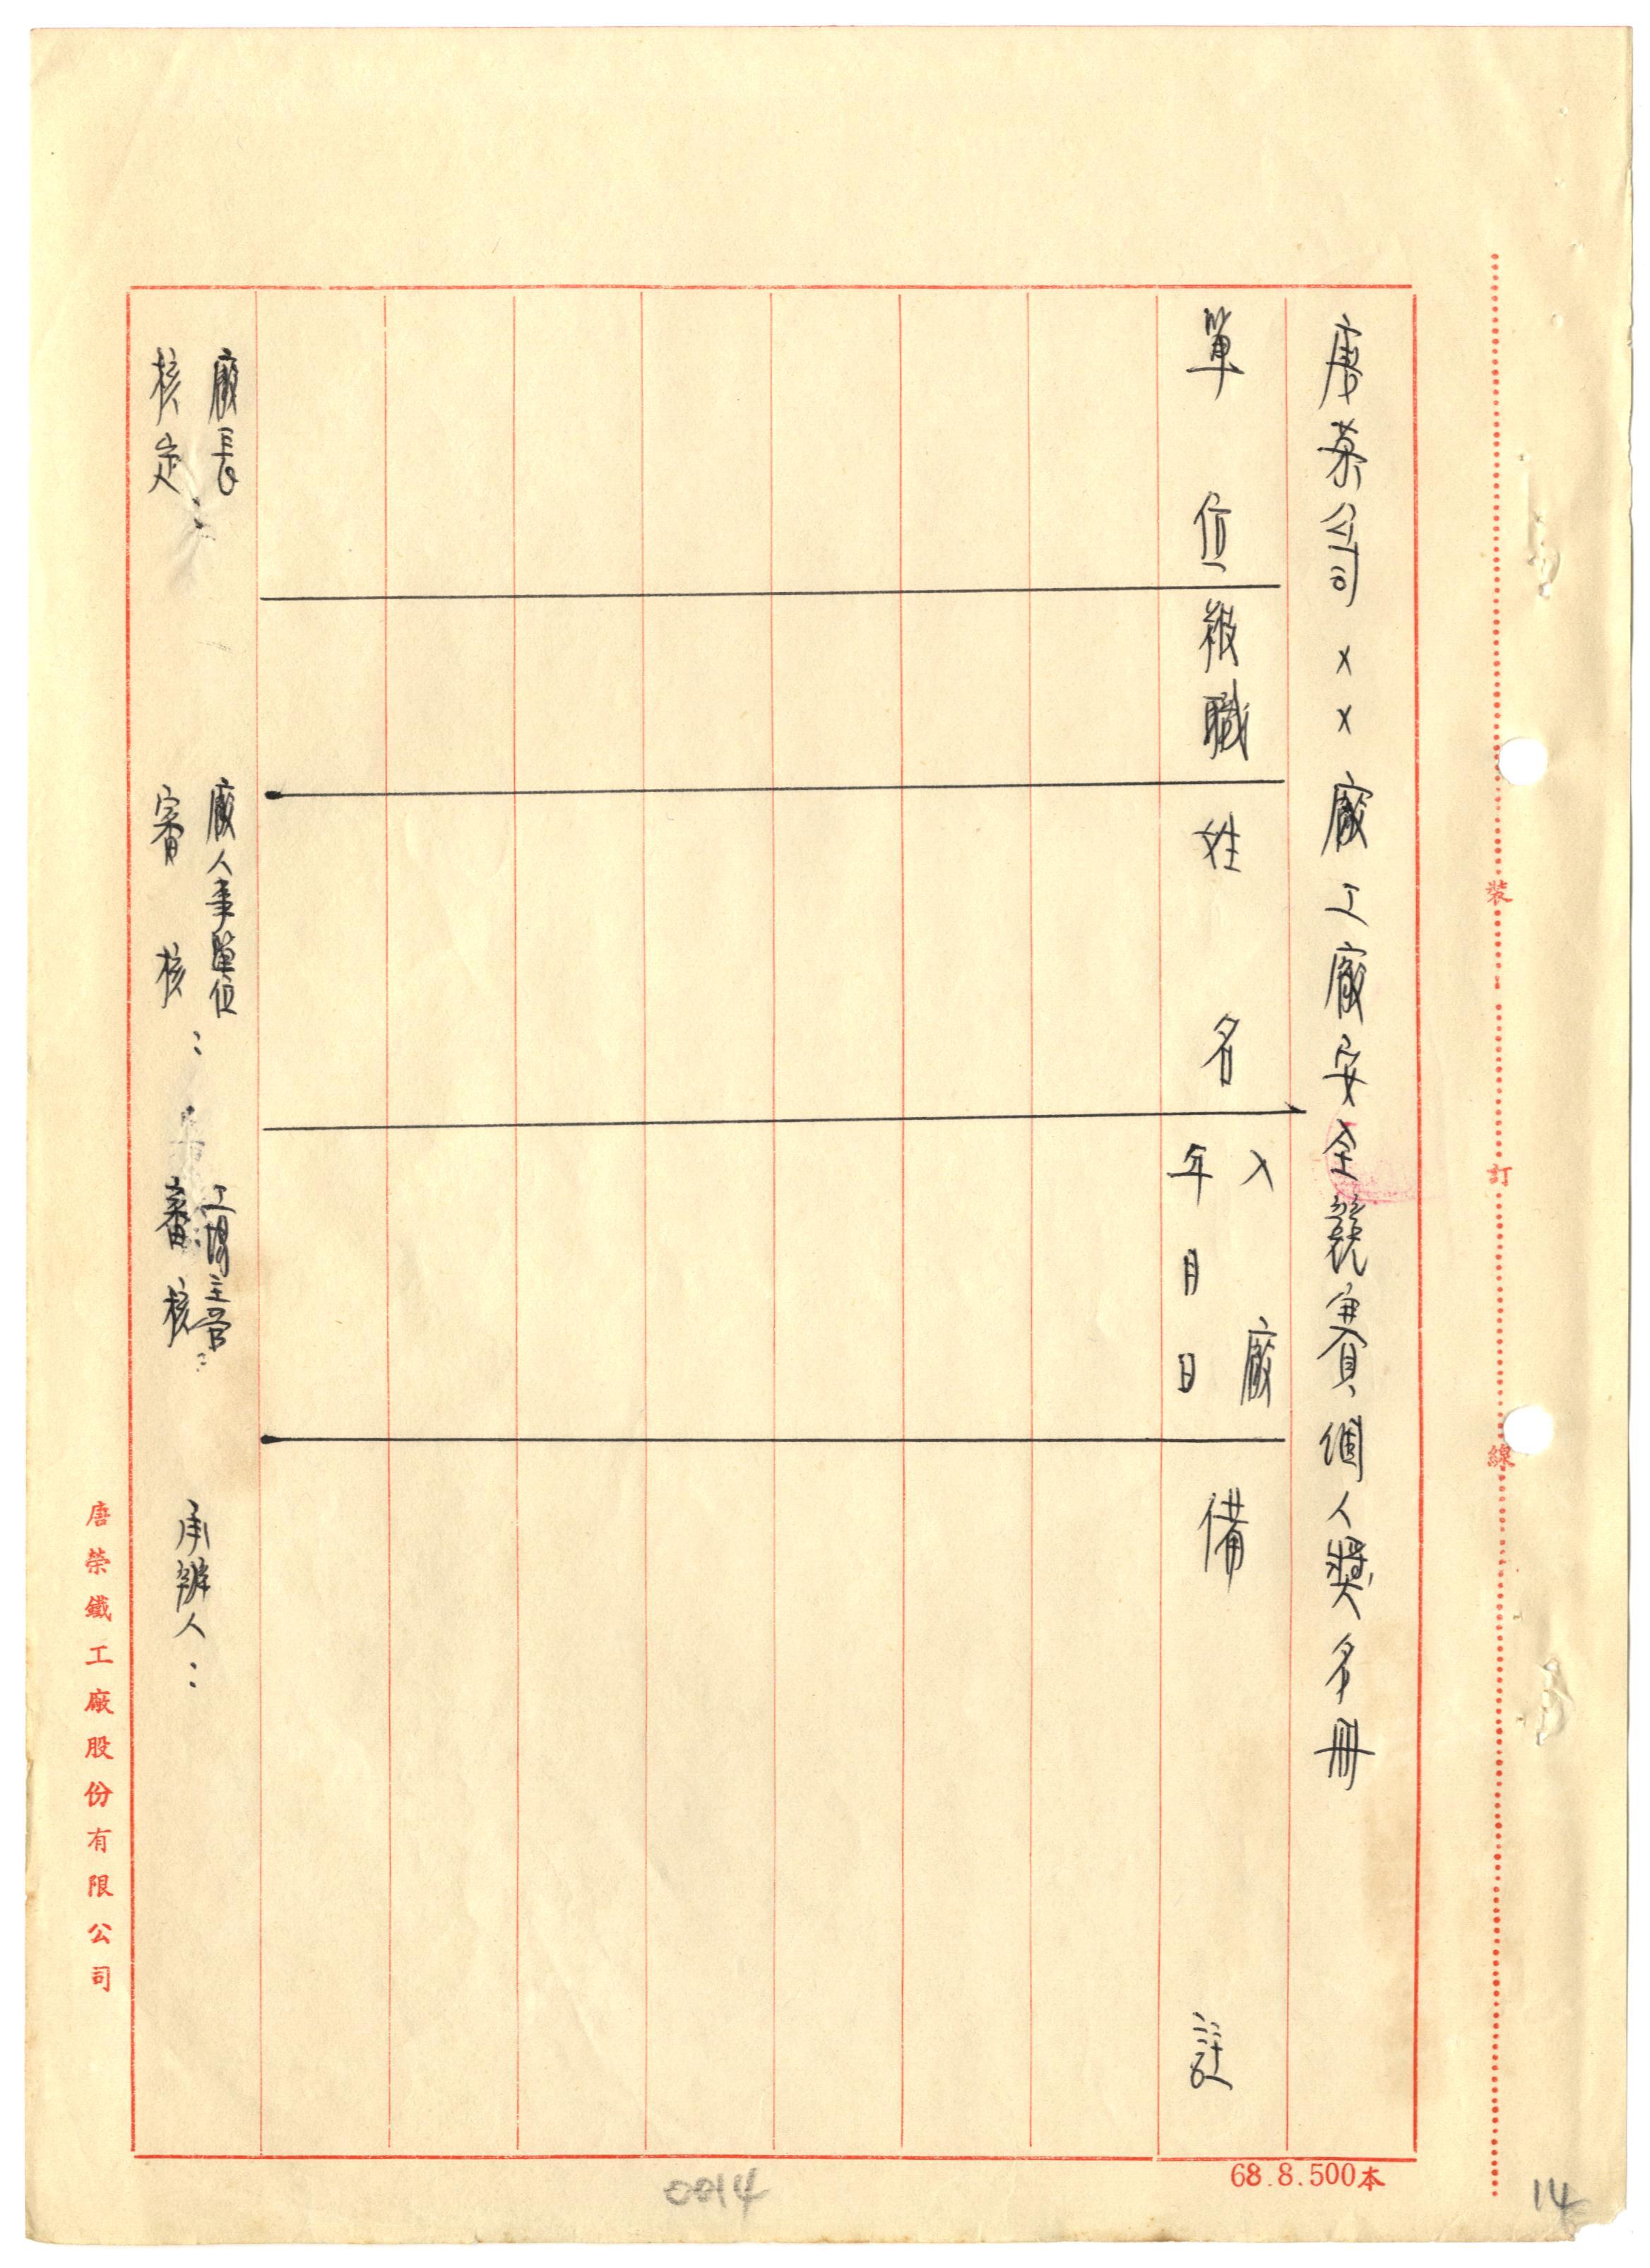 唐荣公司××廠工廠安全競賽個人獎名冊
單位
級職
姓名
入廠
年月日
備註
廠長
核定:
廠人事單位
審核:
工場主管:
審核
承辦人:
唐榮鐵工廠股份有限公司
裝
訂
線
68.8.500本
0014
14